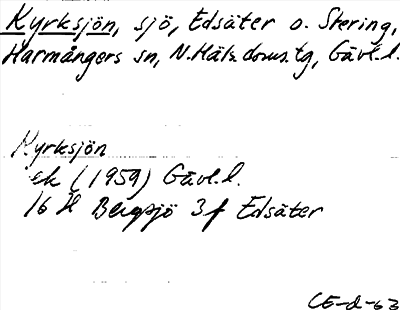 Kyrksjön, sjö, Edsäter o. Stering,
Harmångers sn, N. Häls. doms.tg, Gävl.l.
Kyrksjön
ek (1959) Gävl.l.
16 H Bergsjö 3f Edsäter
CE-d-63